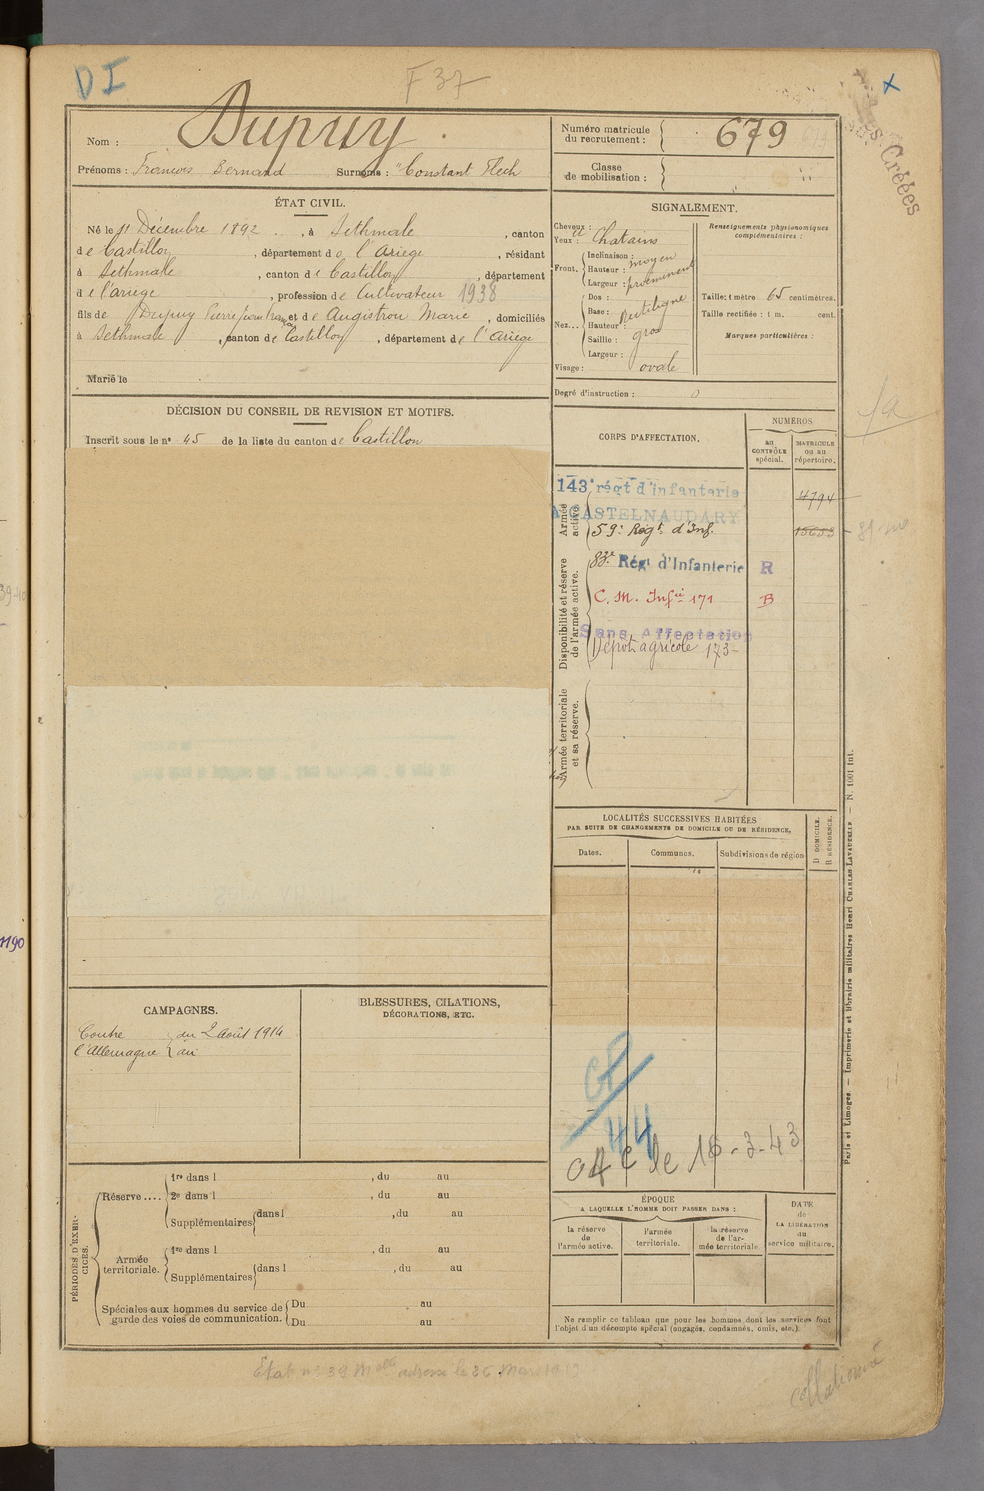 D I
F 37
X
Créées
Nom : Dupuy
Prénoms : François Bernard Surnoms : "Constant Flech
Numéro matricule du recrutement : 679
Classe de mobilisation :
ÉTAT CIVIL.
Né le 11 Décembre 1892, à Sethmale, canton
de Castillon, département de l'Ariège, résidant
à Sethmale, canton de Castillon, département
de l'ariège, profession de Cultivateur 1938
fils de Dupuy Pierre Jean et de Augistrou Marie, domiciliés
à Sethmale, canton de Castillon, département de l'Ariège
Marié le
SIGNALEMENT.
Cheveux :
Yeux : Chatains
Front. Inclinaison : moyen
Hauteur :
Largeur : proéminent
Nez... Dos : Rectiligne
Base :
Hauteur : gros
Saillie :
Largeur :
Visage : ovale
Renseignements physionomiques
complémentaires :
Taille : 1 mètre 65 centimètres.
Taille rectifiée : 1 m. cent.
Marques particulières :
Degré d'instruction : 0
DÉCISION DU CONSEIL DE REVISION ET MOTIFS.
Inscrit sous le n° 45 de la liste du canton de Castillon
CORPS D'AFFECTATION.
NUMÉROS
au CONTRÔLE spécial.
MATRICULE ou au répertoire.
Armée active.
143e régt d'infanterie 4794
à CASTELNAUDARY
59e Régt d'Inf.
Disponibilité et réserve de l'armée active.
83e Régt d'Infanterie R
C. M. Infie 171 B
Sans Affectation
Dépot agricole 173
Armée territoriale et sa réserve.
LOCALITÉS SUCCESSIVES HABITÉES
PAR SUITE DE CHANGEMENTS DE DOMICILE OU DE RÉSIDENCE.
Dates. Communes. Subdivisions de région
D DOMICILE.
R RÉSIDENCE.
44
de 16-3-43
CAMPAGNES.
Contre l'Allemagne du 2 Août 1914
au
BLESSURES, CITATIONS,
DÉCORATIONS, ETC.
PÉRIODES D'EXERCICES.
Réserve .... 1re dans l , du au
2e dans l , du au
Supplémentaires dans l , du au
Armée territoriale. 1re dans l , du au
Supplémentaires dans l , du au
Spéciales aux hommes du service de garde des voies de communication. Du au
Du au
ÉPOQUE
A LAQUELLE L'HOMME DOIT PASSER DANS :
la réserve de l'armée active.
l'armée territoriale.
la réserve de l'armée territoriale.
DATE
de
LA LIBÉRATION
du
service militaire.
Ne remplir ce tableau que pour les hommes dont les services font
l'objet d'un décompte spécial (engagés, condamnés, omis, etc.).
Paris et Limoges. — Imprimerie et librairie militaires Henri CHARLES-LAVAUZELLE — N. 1001 int.
1190
collationné